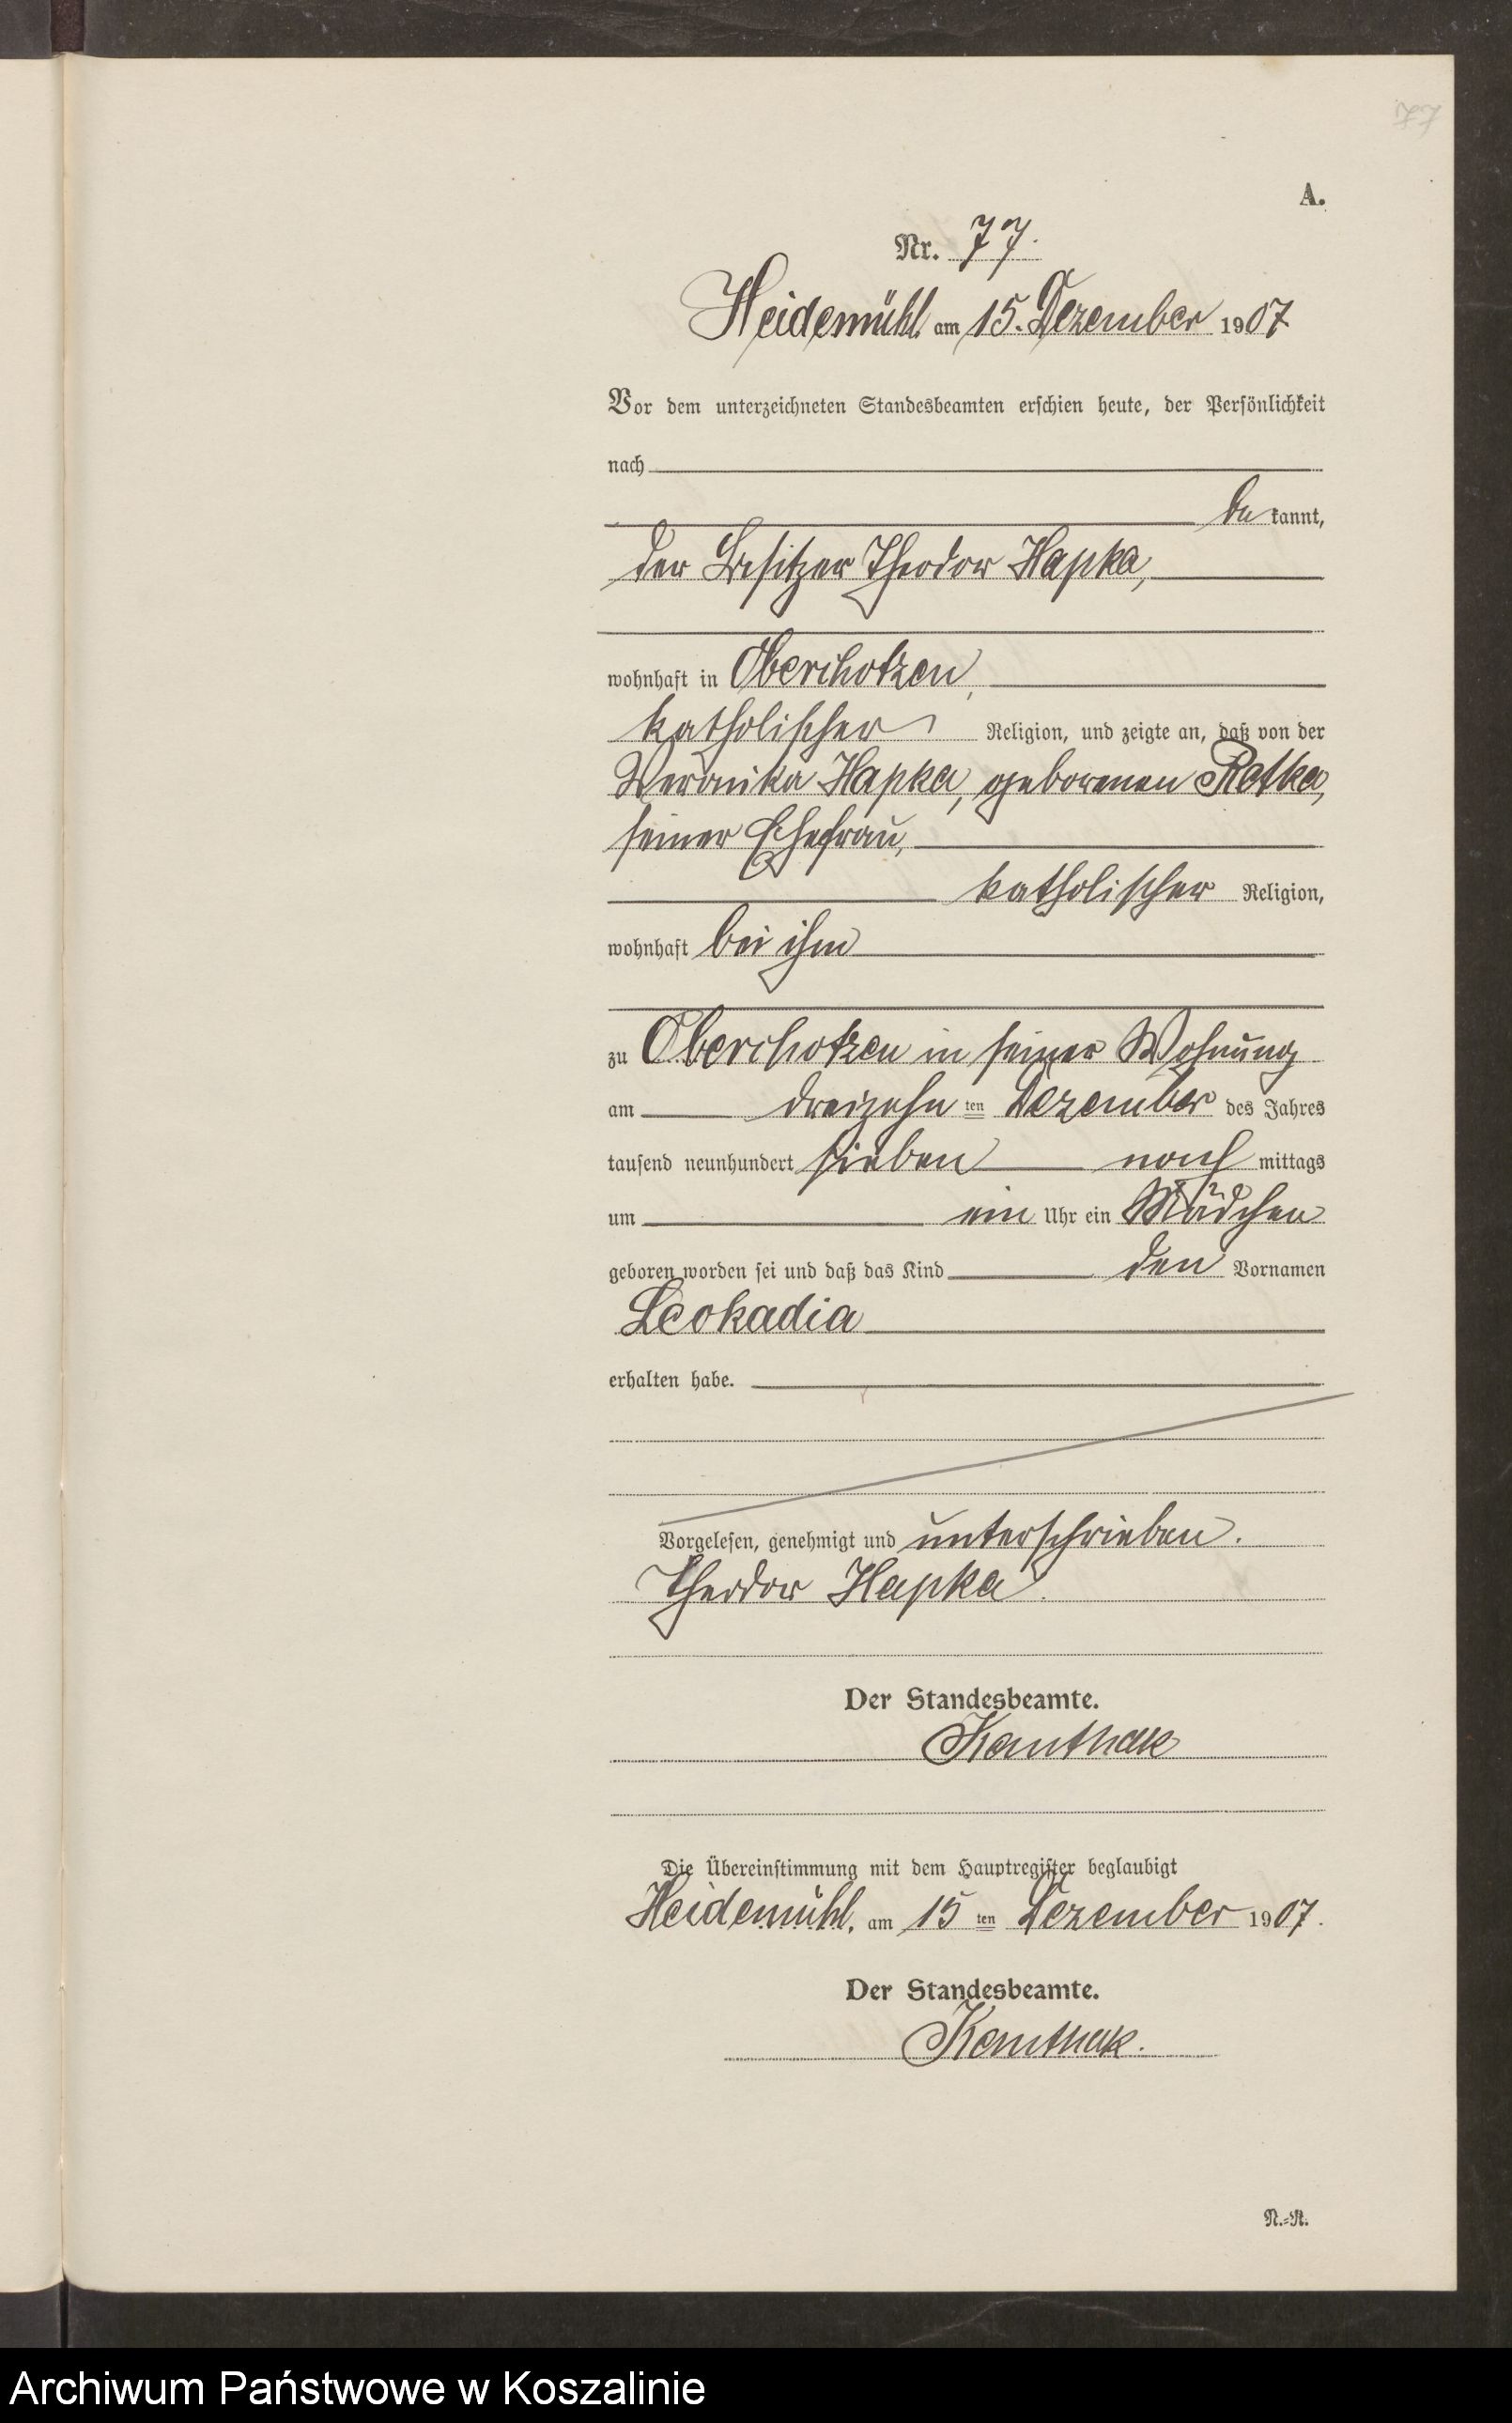 77
A.
Nr. 77.
Heidemühl am 15. Dezember 1907
Vor dem unterzeichneten Standesbeamten erschien heute, der Persönlichkeit
nach
be kannt,
der Besitzer Theodor Hapka,
wohnhaft in Oberchotzen,
katholischer Religion, und zeigte an, daß von der
Veronika Hapka, geborenen Retka,
seiner Ehefrau,
katholischer Religion,
wohnhaft bei ihm
zu Oberchotzen in seiner Wohnung
am dreizehn ten Dezember des Jahres
tausend neunhundert sieben nach mittags
um ein Uhr ein Mädchen
geboren worden sei und daß das Kind den Vornamen
Leokadia
erhalten habe.
Vorgelesen, genehmigt und unterschrieben.
Theodor Hapka.
Der Standesbeamte.
Kanthak
Die Übereinstimmung mit dem Hauptregister beglaubigt
Heidemühl, am 15 ten Dezember 1907.
Der Standesbeamte.
Kanthak.
N.-R.
Archiwum Państwowe w Koszalinie